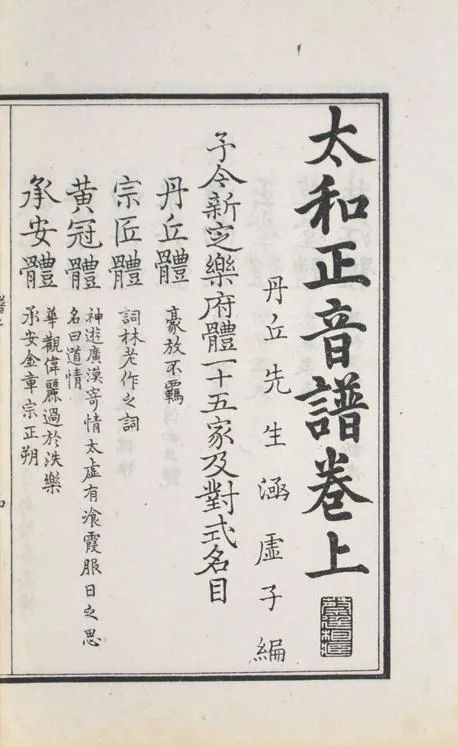 太和正音譜卷上
丹丘先生涵虛子編
予今新定樂府體一十五家及對式名目
丹丘體 豪放不羈
宗匠體 詞林老作之詞
黃冠體 神遊廣漠寄情太虛有飡霞服日之思
名曰道情
承安體 華觀偉麗過於泆樂
承安金章宗正朔